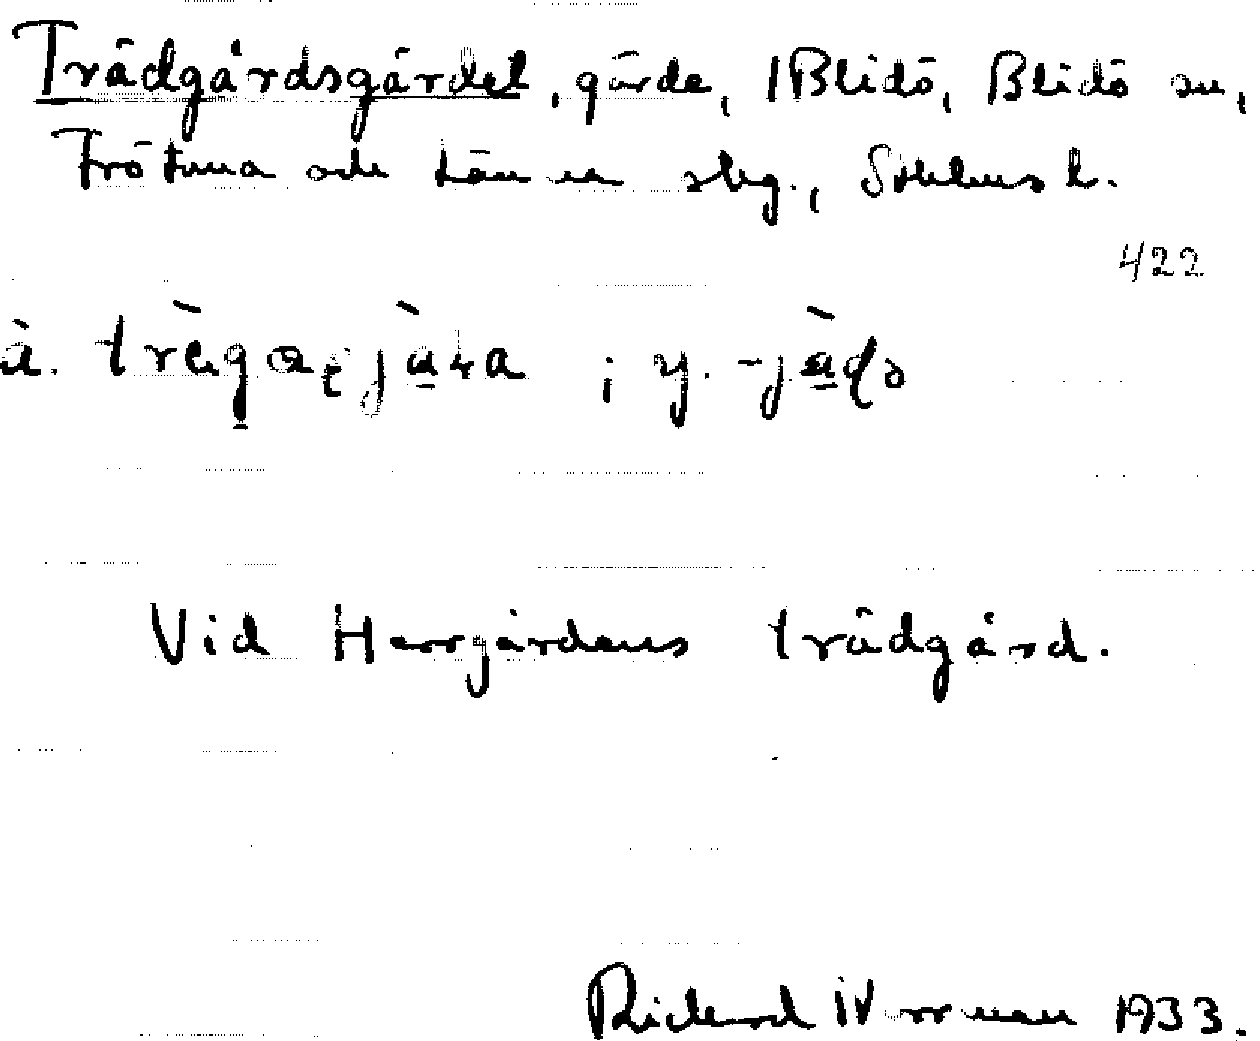 Trädgårdsgärdet, gärde, 1 Blidö, Blidö sn,
Frötuna och Länna skg., Sthlms l.
422
Vid Herrgårdens trädgård.
Rickard Norrman 1933.